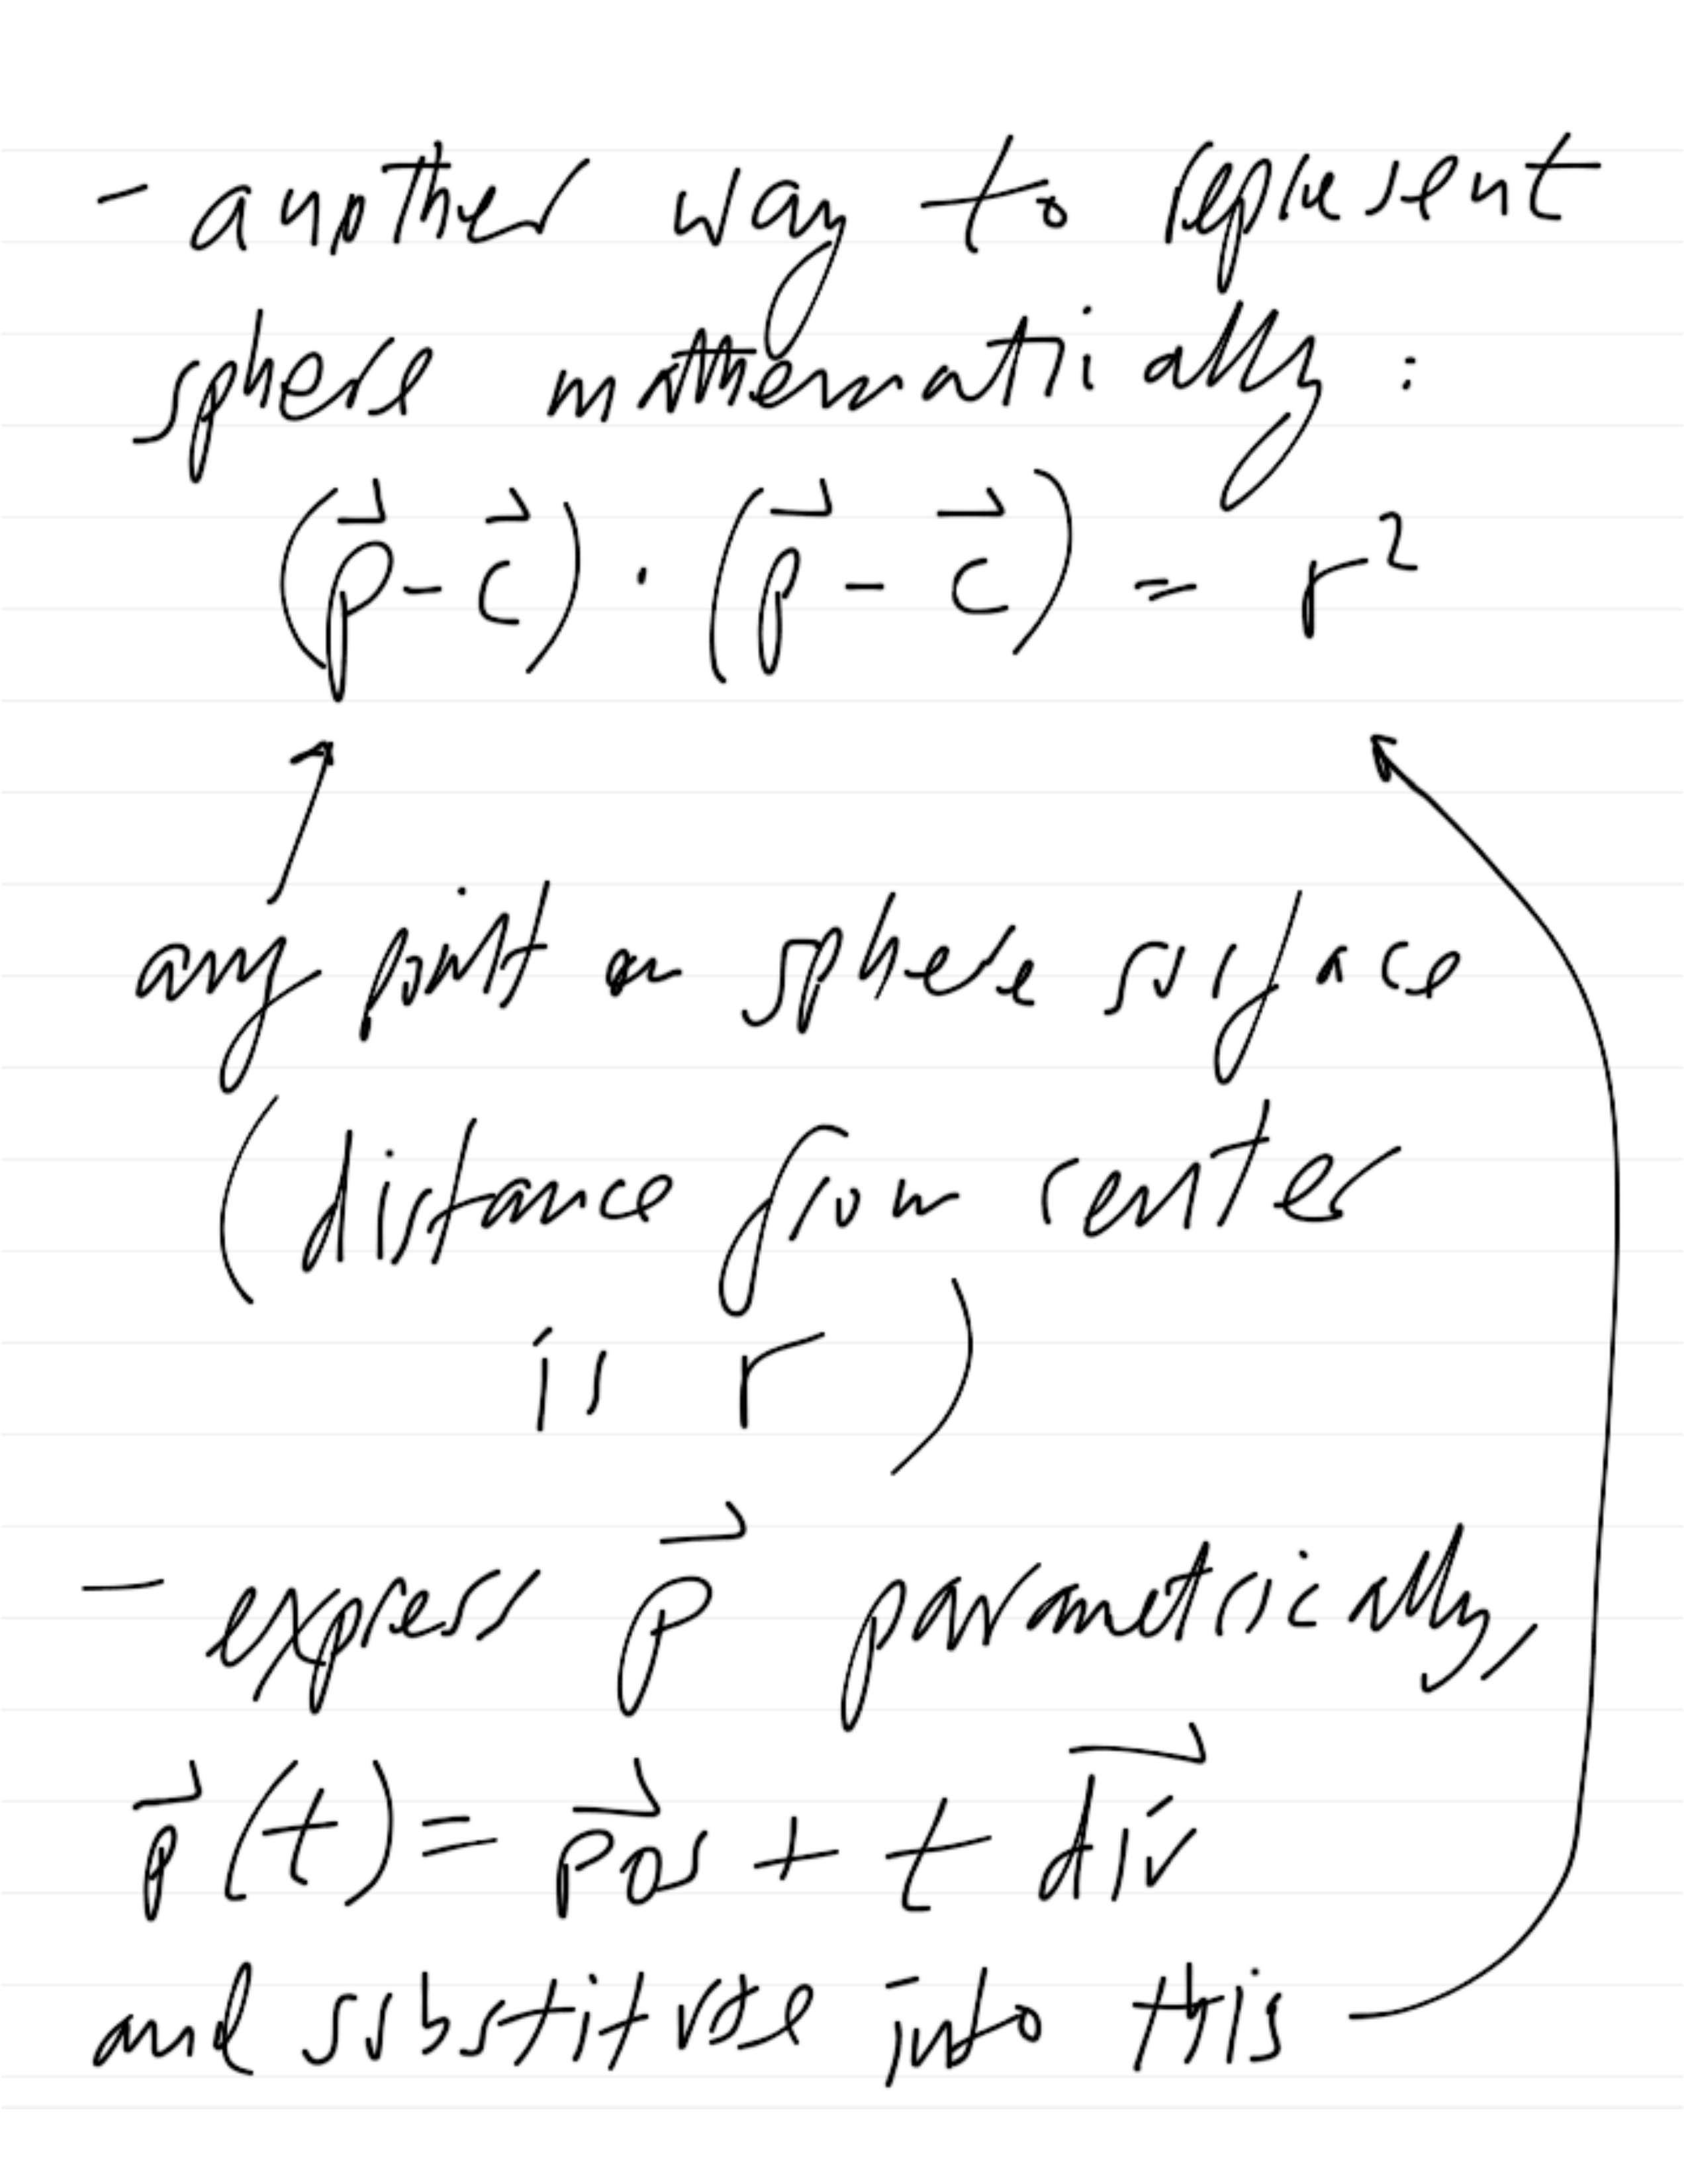 - another way to represent
sphere mathematically:
(p⃗ - c⃗) · (p⃗ - c⃗) = r²
any point on sphere surface
(distance from center
is r)
- express p⃗ parametrically,
p⃗(t) = pos⃗ + t dir⃗
and substitute into this